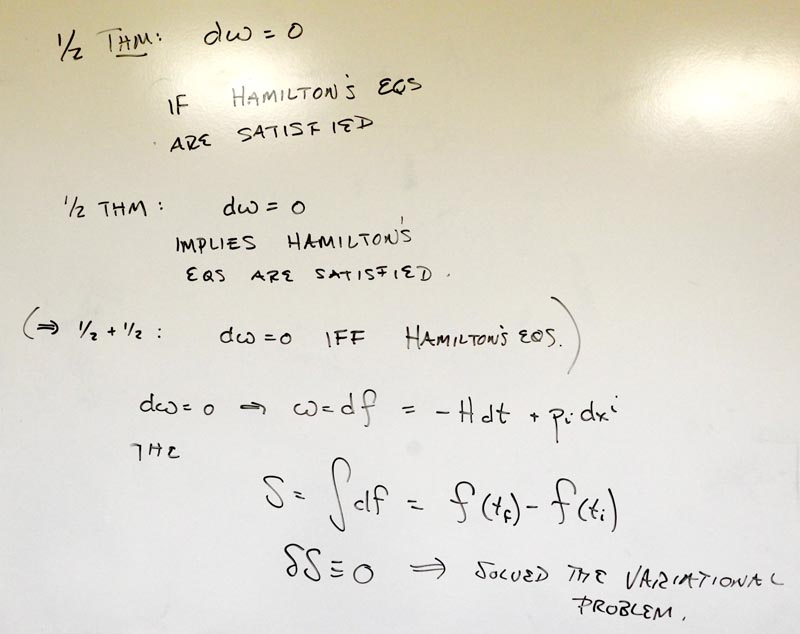 1/2 THM: dω = 0
IF HAMILTON'S EQS
ARE SATISFIED
1/2 THM: dω = 0
IMPLIES HAMILTON'S
EQS ARE SATISFIED.
(⇒ 1/2 + 1/2 : dω = 0 IFF HAMILTON'S EQS.)
dω = 0 ⇒ ω = df = -Hdt + p_i dx^i
THE
S = ∫df = f(t_f) - f(t_i)
δS ≡ 0 ⇒ SOLVED THE VARIATIONAL
PROBLEM.